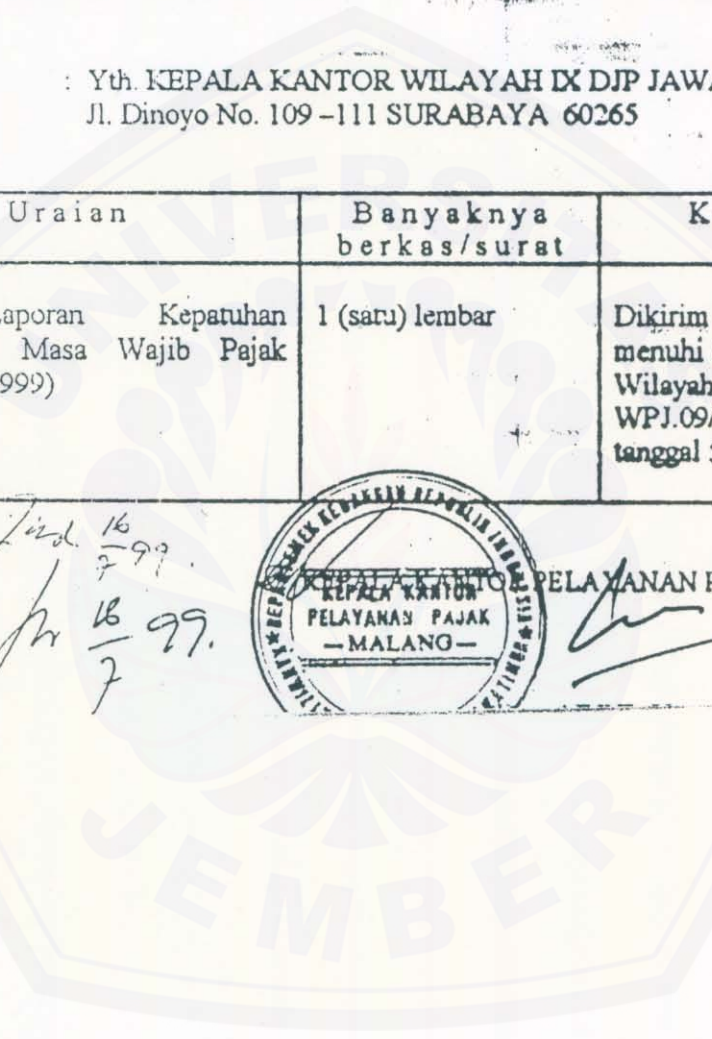 : Yth. KEPALA KANTOR WILAYAH IX DJP JAWA
Jl. Dinoyo No. 109 –111 SURABAYA 60265
Uraian
Banyaknya berkas/surat
K
aporan Kepatuhan
Masa Wajib Pajak
999)
1 (satu) lembar
Dikirim
menuhi
Wilayah
WPJ.09/
tanggal
16
7 99.
18
7 99.
KEPALA KANTOR PELAYANAN P
DEPARTEMEN KEUANGAN REPUBLIK INDONESIA
KEPALA KANTOR
PELAYANAN PAJAK
—MALANG—
UNIVERSITAS
JEMBER